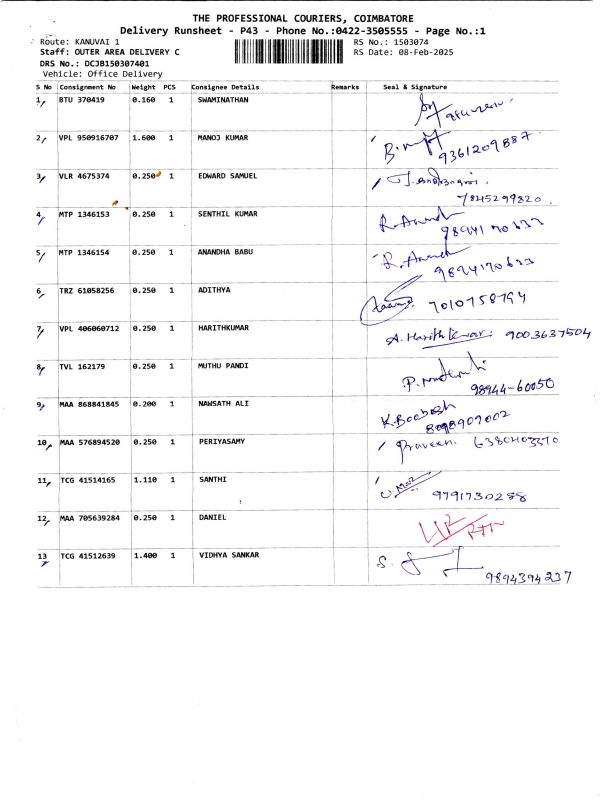 THE PROFESSIONAL COURIERS, COIMBATORE
Delivery Runsheet - P43 - Phone No.:0422-3505555 - Page No.:1
Route: KANUVAI 1 RS No.: 1503074
Staff: OUTER AREA DELIVERY C RS Date: 08-Feb-2025
DRS No.: DCJB150307401
Vehicle: Office Delivery
S No Consignment No Weight PCS Consignee Details Remarks Seal & Signature
1 BTU 370419 0.160 1 SWAMINATHAN
2 VPL 950916707 1.600 1 MANOJ KUMAR 9361209887
3 VLR 4675374 0.250 1 EDWARD SAMUEL 7845299820
4 MTP 1346153 0.250 1 SENTHIL KUMAR R. Anand 9894170633
5 MTP 1346154 0.250 1 ANANDHA BABU R. Anand 9894170633
6 TRZ 61058256 0.250 1 ADITHYA 7010758794
7 VPL 406060712 0.250 1 HARITHKUMAR A. Harith Kumar 9003637504
8 TVL 162179 0.250 1 MUTHU PANDI 98944-60050
9 MAA 868841845 0.200 1 NAWSATH ALI 8098909002
10 MAA 576894520 0.250 1 PERIYASAMY Praveen. 6380403370
11 TCG 41514165 1.110 1 SANTHI 9791730288
12 MAA 705639284 0.250 1 DANIEL
13 TCG 41512639 1.400 1 VIDHYA SANKAR S. 9894394237